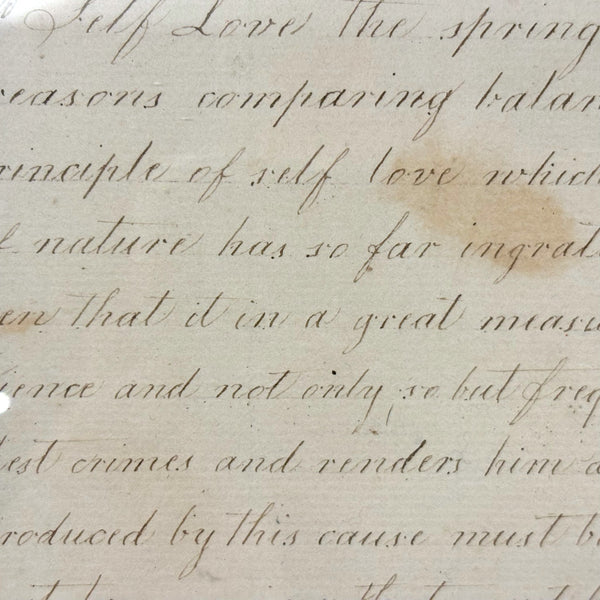 Self Love the spring
reasons comparing balan
rinciple of self love which
f nature has so far ingrat
en that it in a great measu
ience and not only so but freq
lest crimes and renders him a
roduced by this cause must b